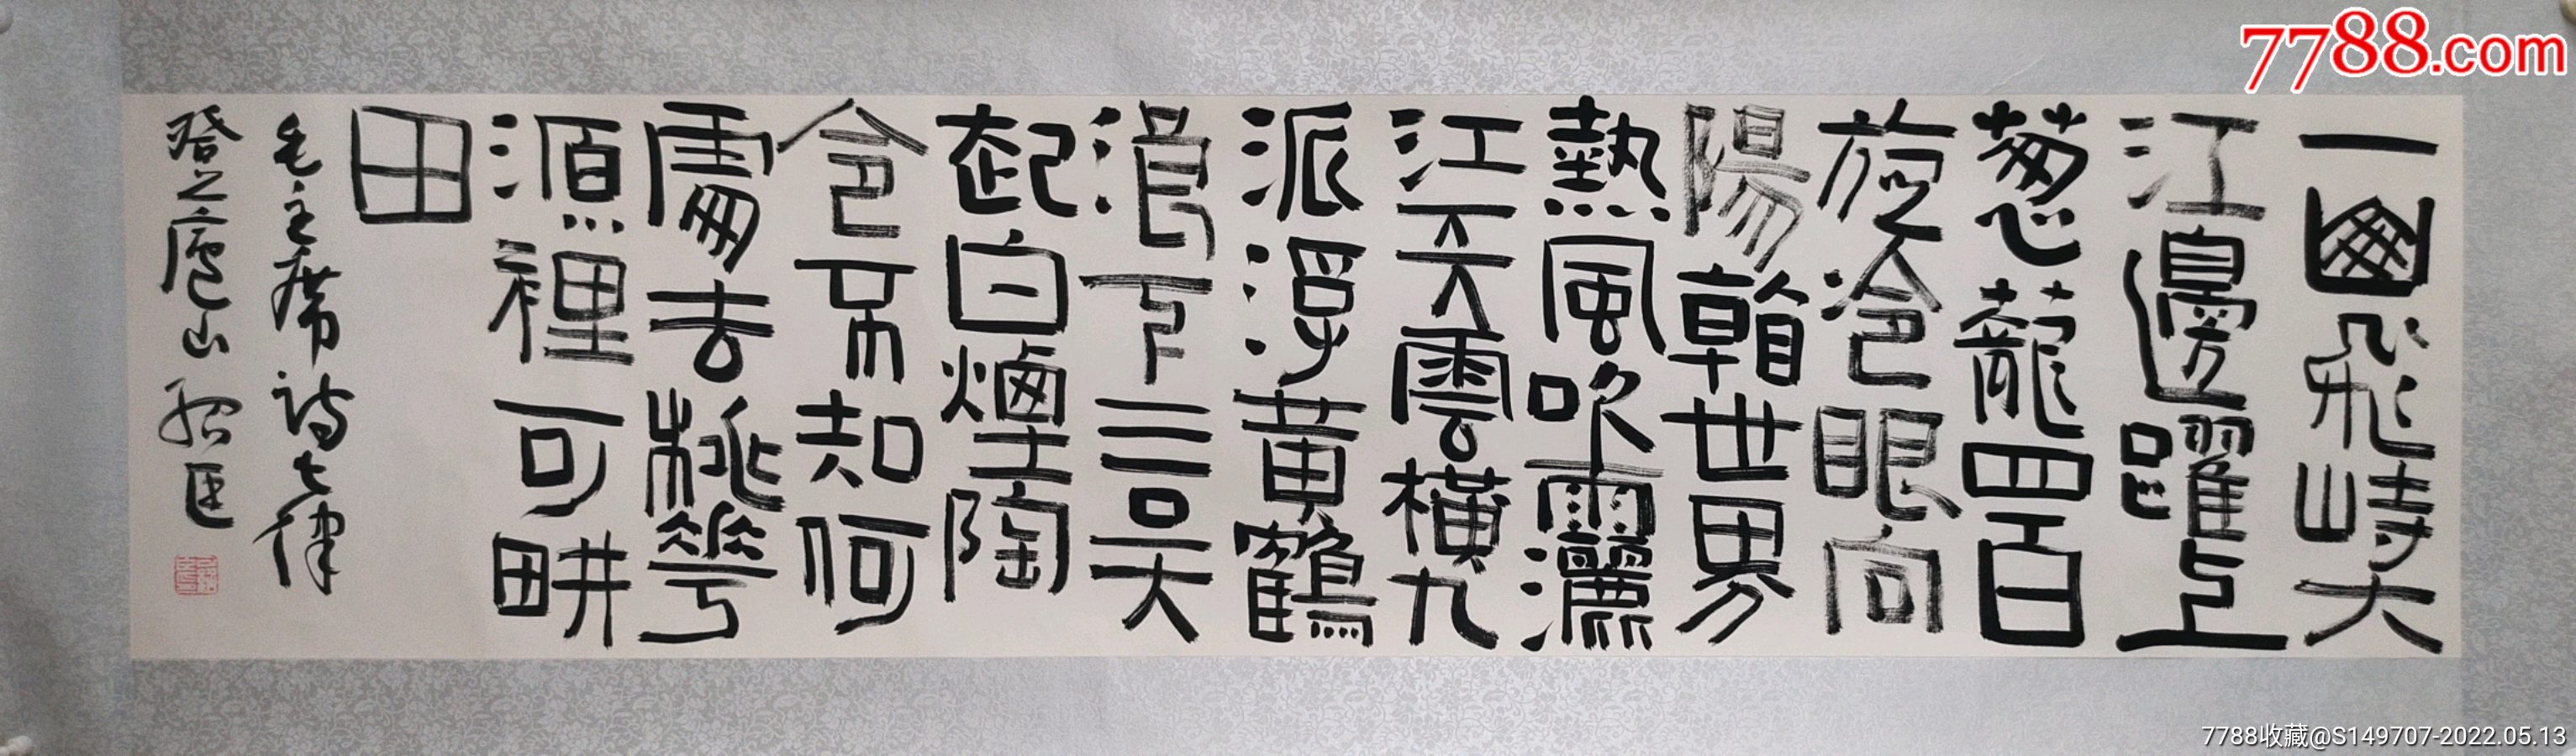 一山飛峙大
江邊躍上
葱蘢四百
旋冷眼向
陽看世界
熱風吹雨灑
江天雲橫九
派浮黃鶴
浪下三吳
起白煙陶
令不知何
處去桃花
源裡可畊
田
毛主席詩七律
登廬山
7788.com
7788收藏@S149707-2022.05.13